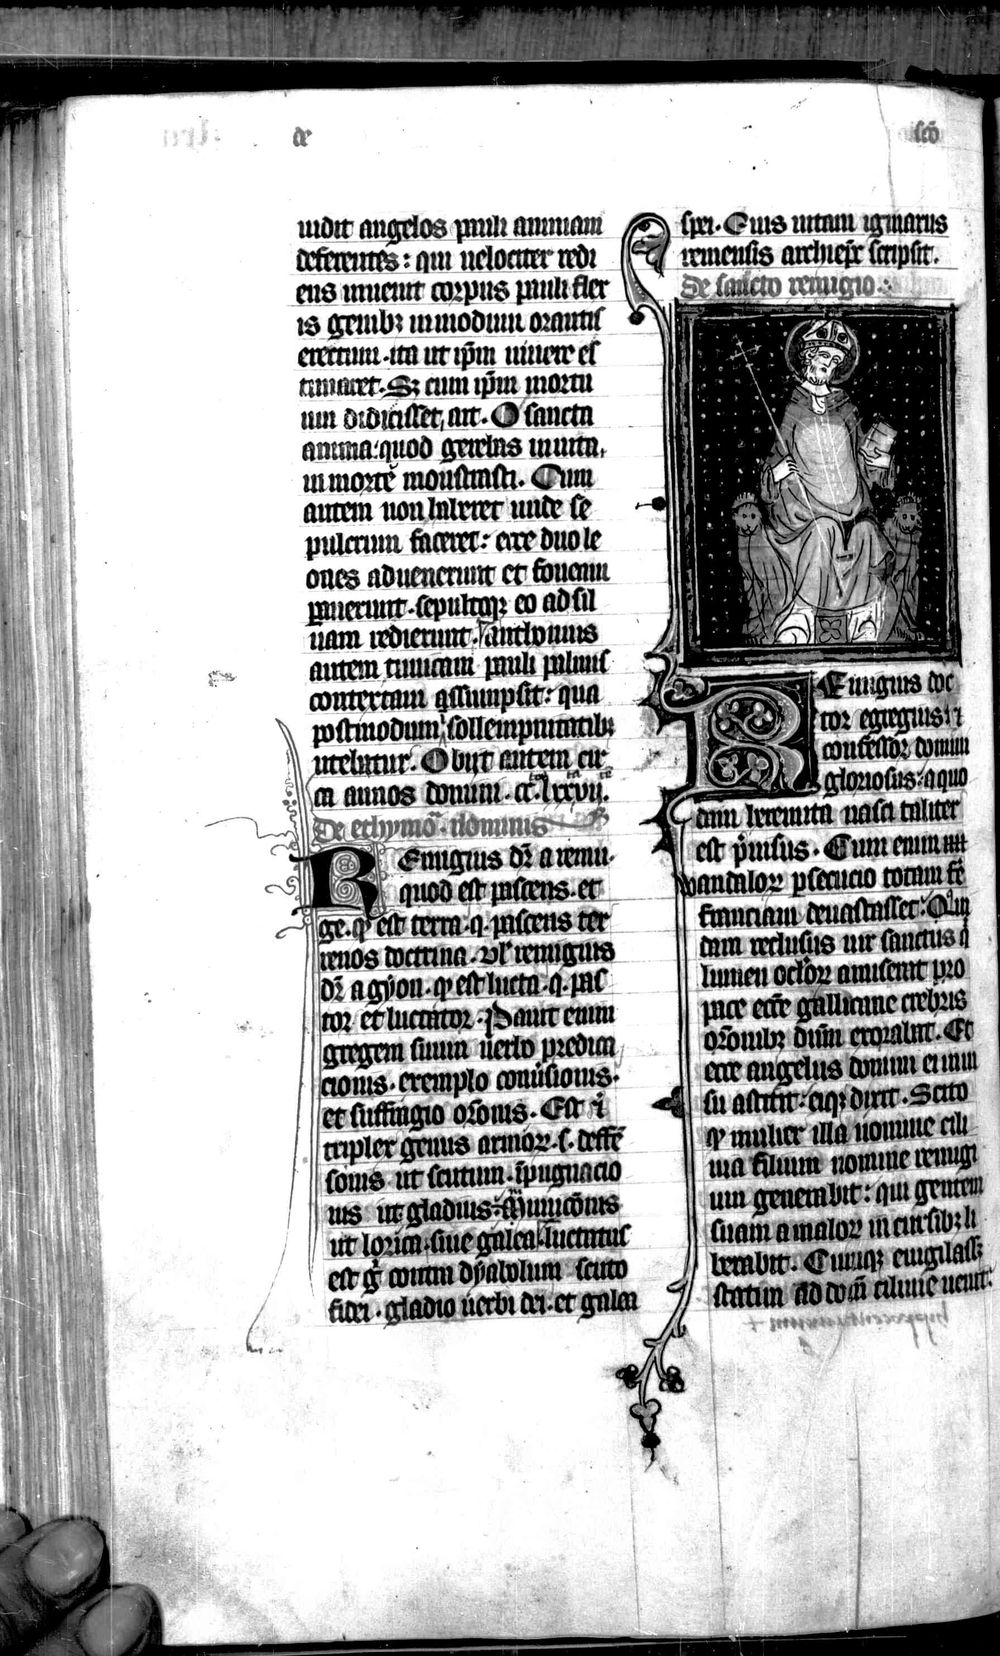 de
sco
uidit angelos pauli animam
deferentes : qui uelociter redi
ens inuenit corpus pauli flex
is genibꝫ in modum orantis
erectum . ita ut ip̄m uiuere es
timaret . Sꝫ cum ip̄m mortu
um didicisset, ait . O sancta
anima : quod gerebas in uita,
in morte monstrasti . Cum
autem non haberet unde se
pulcrum faceret : ecce duo le
ones aduenerunt et foueam
parauerunt . sepultoqꝫ eo ad sil
uam redierunt . anthonius
autem tunicam pauli palmis
contextam assumpsit : qua
postmodum sollempnitatibꝫ
utebatur . Obijt autem cir
ca annos domini . cc lxxvii.
De ethymo . nominis
Remigius dr̄ a remi .
quod est pascens . et
ge . ꝙ est terra . q . pascens ter
renos doctrina . vl remigius
dr̄ a gyon . ꝙ est lucta . q . pas
tor et luctator . Pauit enim
gregem suum uerbo predica
cionis . exemplo conuersionis .
et suffragio or̄onis . Est
triplex genus armoꝝ . s . deffē
sionis ut scutum . īpugnacio
nis ut gladius . Municōnis
ut lorica . siue galea . luctatus
est g̊ contra dyabolum scuto
fidei . gladio uerbi dei . et galea
spei . Eius uitam igmarus
remensis archiep̄c scripsit .
De sancto remigio .
Remigius doc
tor egregius et
confessor domini
gloriosus : a quo
dam heremita nasci taliter
est p̄uisus . Cum enim
wandaloꝝ psecucio totam fē
franciam deuastasset : Quī
dam reclusus uir sanctus q̇
lumen ocl̄oꝝ amiserat pro
pace ecc̄e gallicane crebris
or̄onibꝫ dn̄m exorabat . Et
ecce angelus domini ei uim
su astitit : eiqꝫ dixit . Scito
ꝙ mulier illa nomine cili
nia filium nomine remigi
um generabit : qui gentem
suam a maloꝝ incursibꝫ li
berabit . Cumqꝫ euigilassꝫ
statim ad domū cilinie uenit :